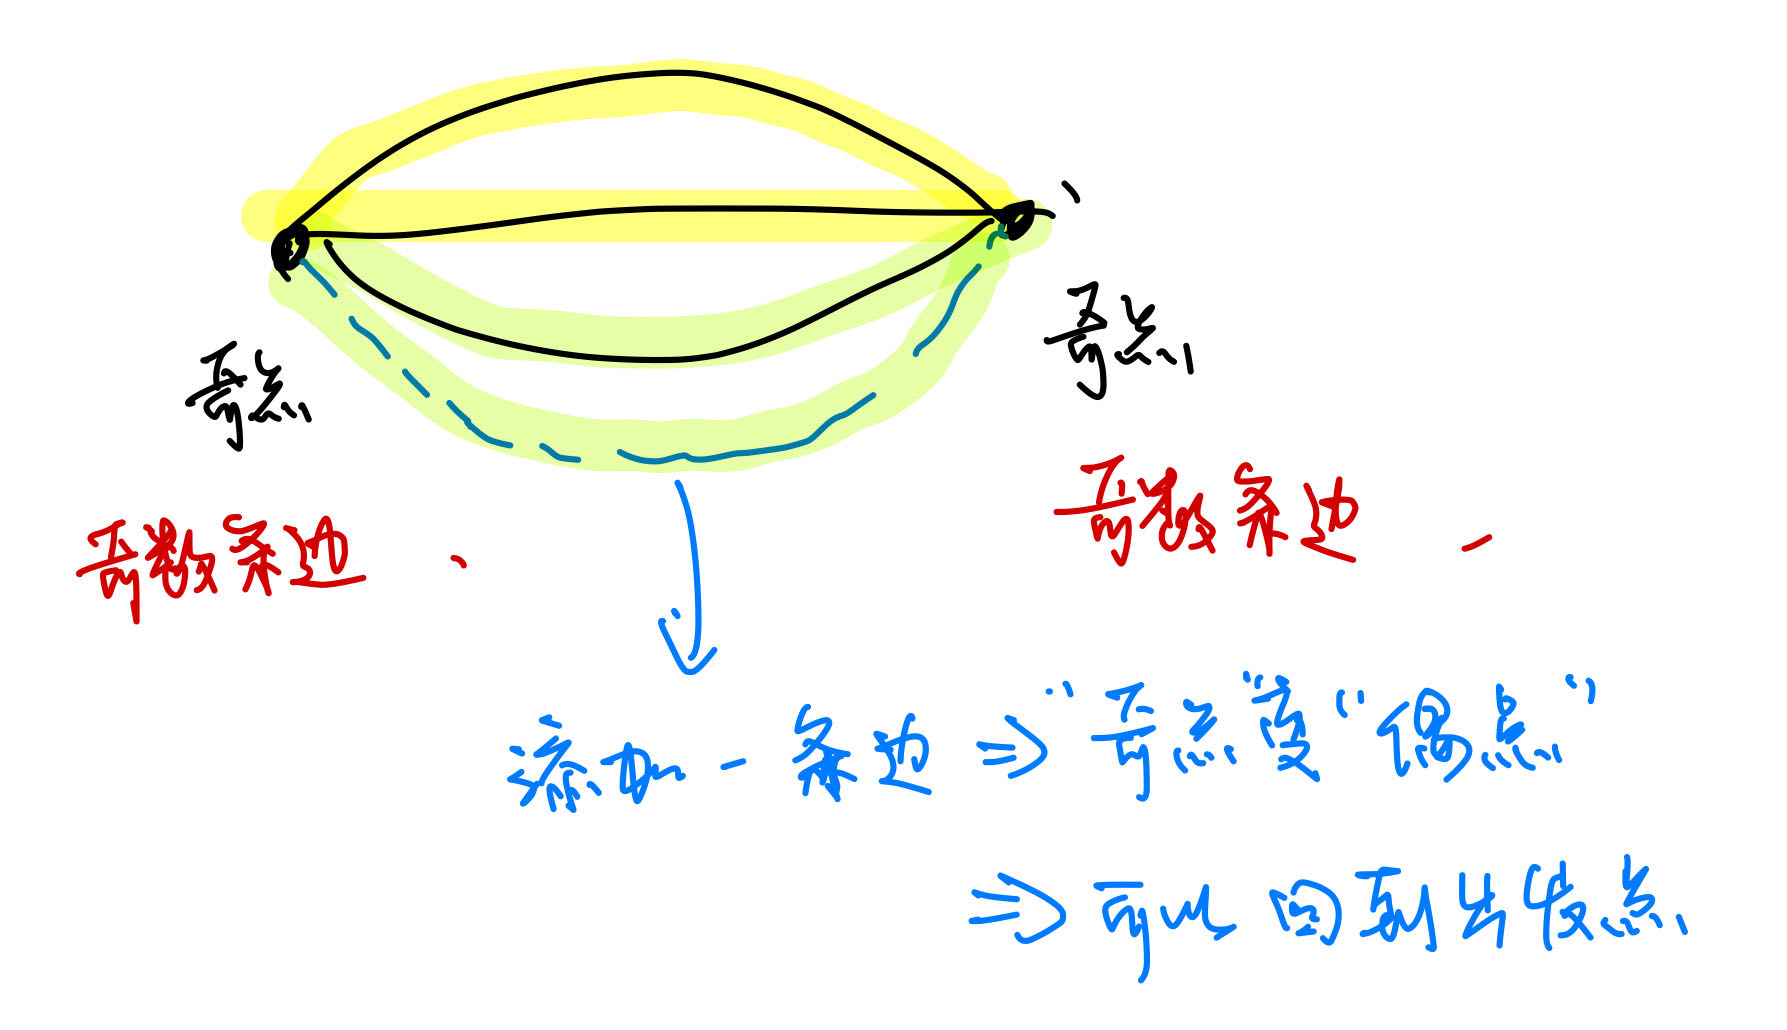 奇点
奇点
奇数条边
奇数条边
添加一条边 ⇒ "奇点"变"偶点"
⇒ 可以回到出发点